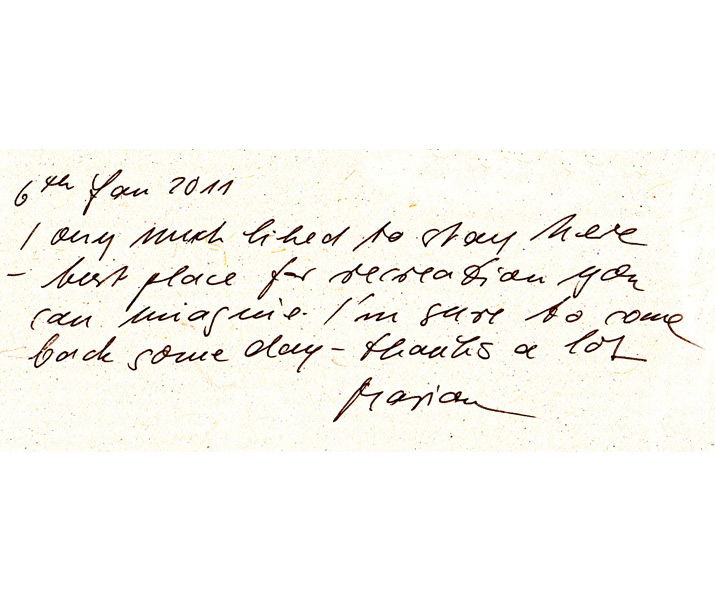 6th Jan 2011
I very much liked to stay here
- best place for recreation you
can imagine. I'm sure to come
back some day - thanks a lot
Marian